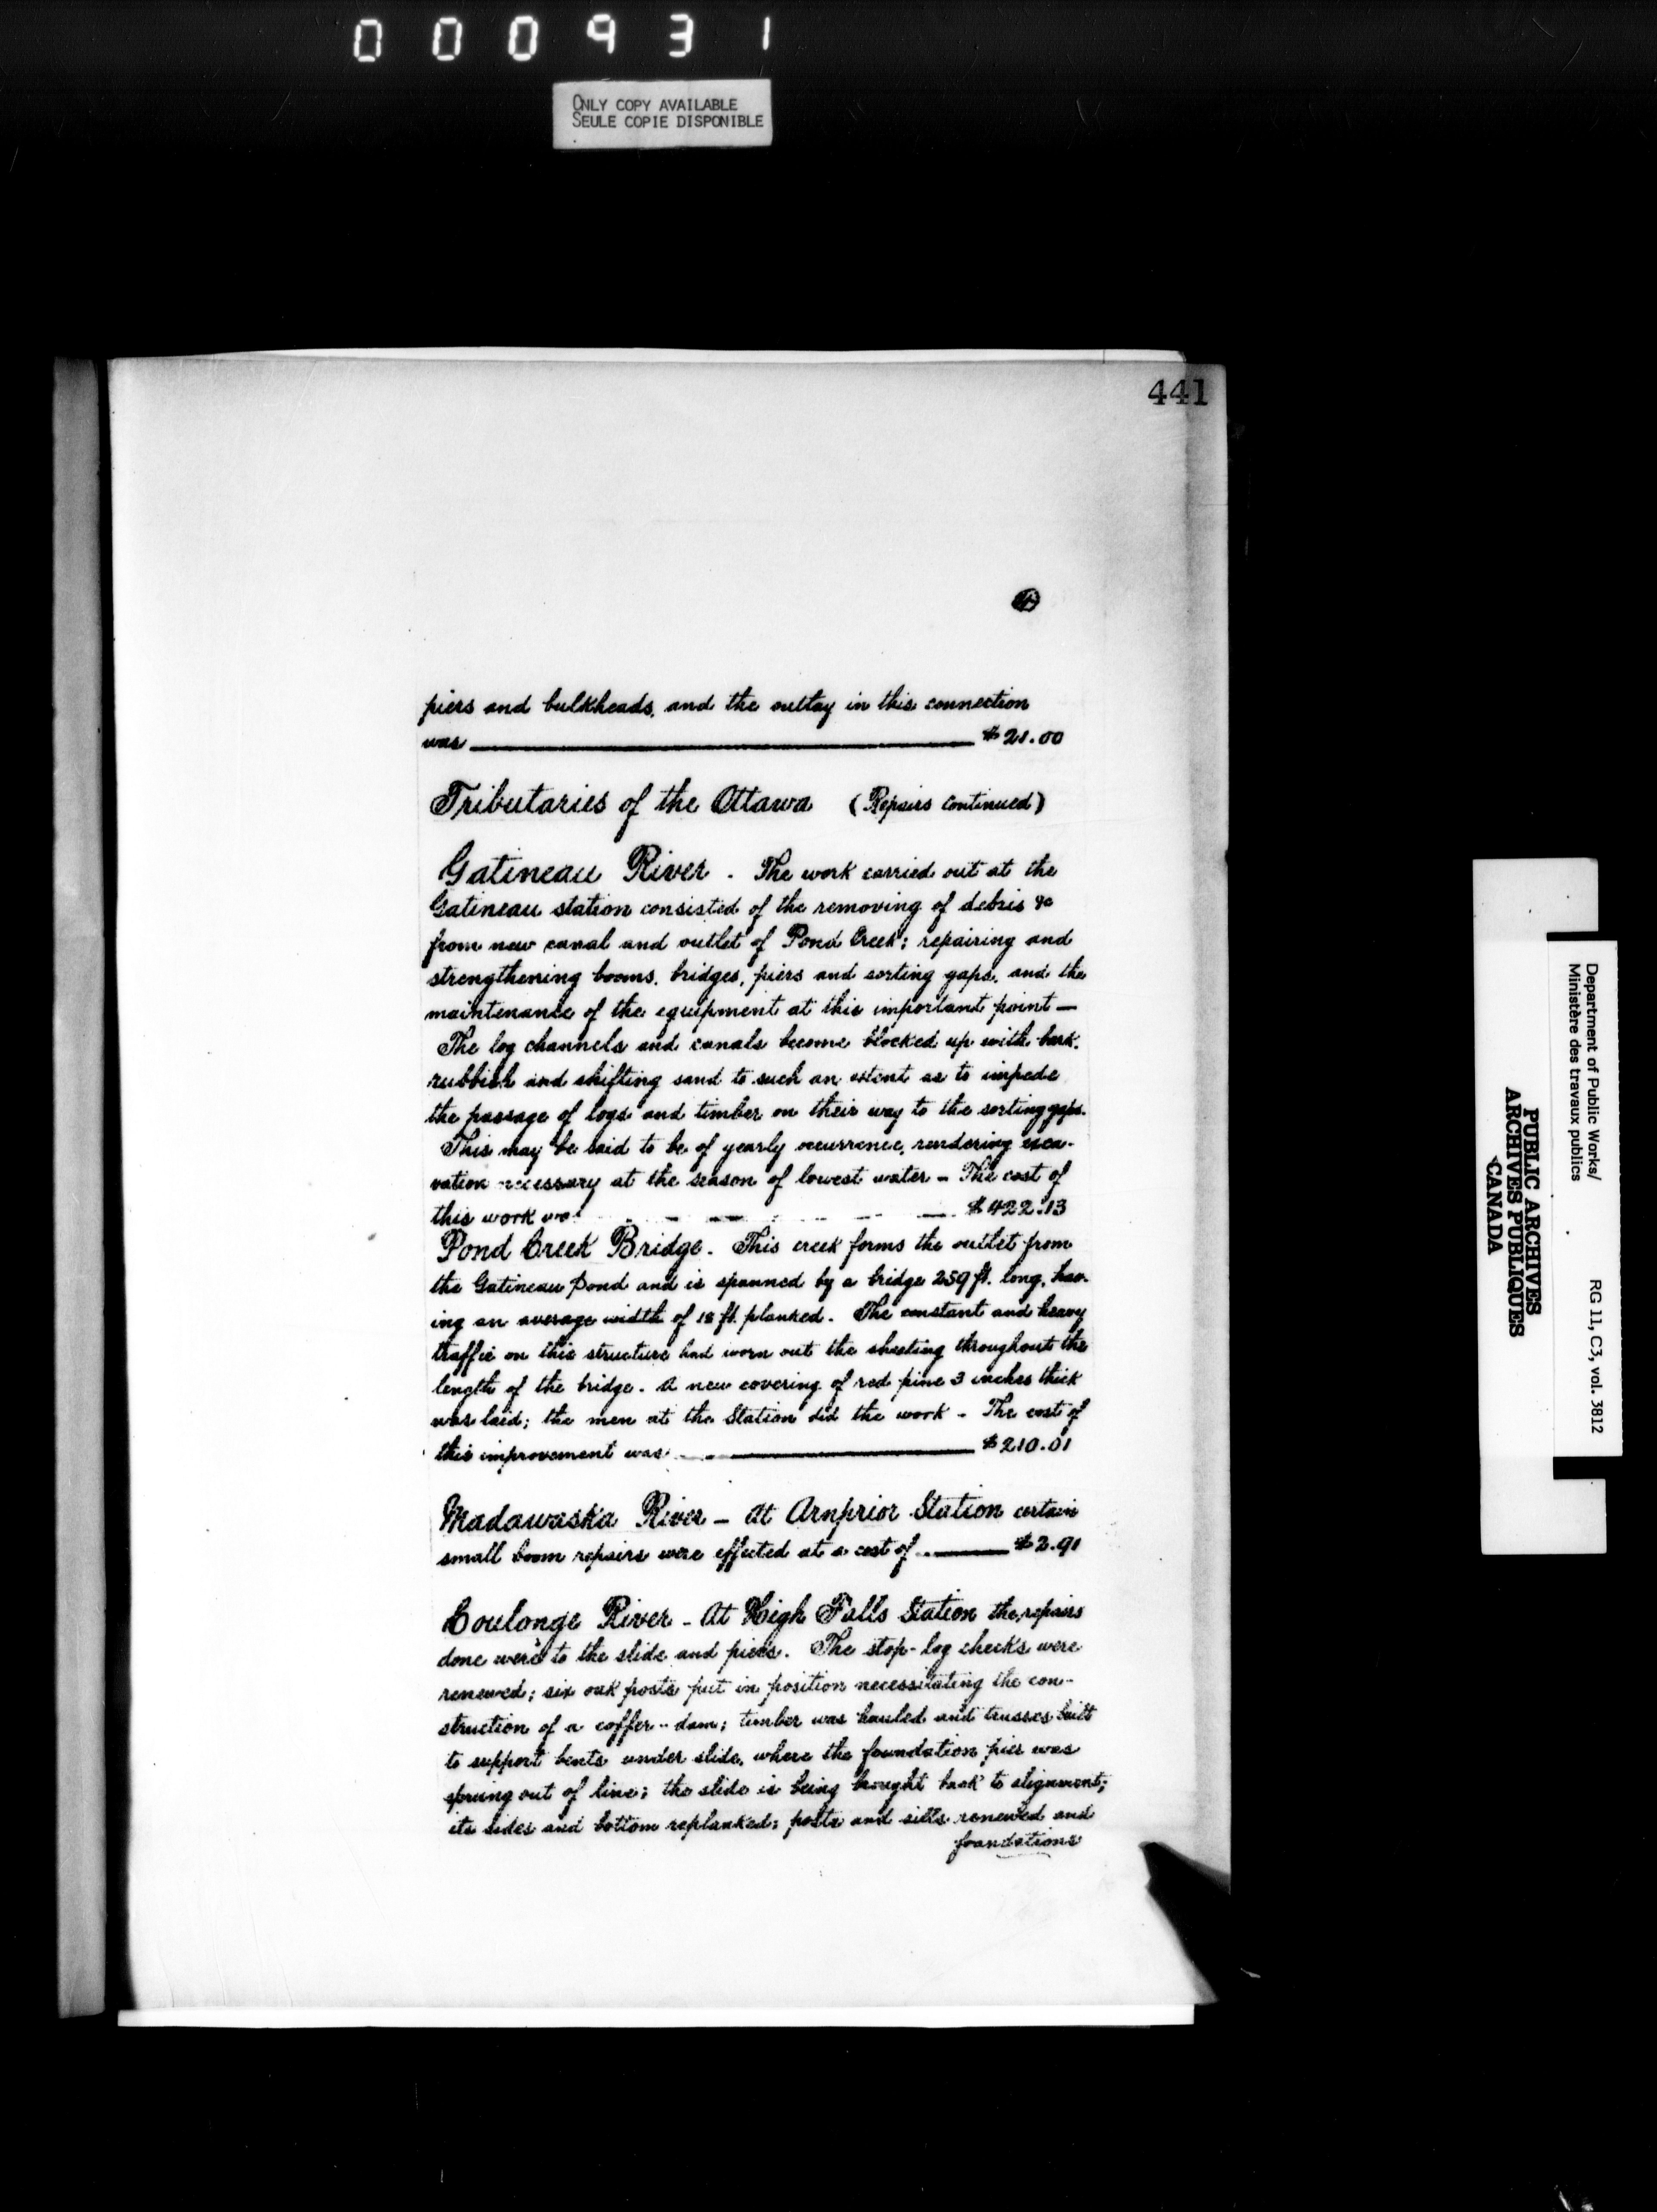 000931
ONLY COPY AVAILABLE
SEULE COPIE DISPONIBLE
441
piers and bulkheads, and the outlay in this connection
was $21.00
Tributaries of the Ottawa (Repairs continued)
Gatineau River - The work carried out at the
Gatineau station consisted of the removing of debris &c
from new canal and outlet of Pond Creek; repairing and
strengthening booms, bridges, piers and sorting gaps, and the
maintenance of the equipment at this important point —
The log channels and canals become blocked up with bark,
rubbish and shifting sand to such an extent as to impede
the passage of logs and timber on their way to the sorting gaps.
This may be said to be of yearly occurrence, rendering exca-
vation necessary at the season of lowest water - The cost of
this work was $422.13
Pond Creek Bridge - This creek forms the outlet from
the Gatineau Pond and is spanned by a bridge 259 ft. long, hav-
ing an average width of 18 ft. planked. The constant and heavy
traffic on this structure had worn out the sheeting throughout the
length of the bridge. A new covering of red pine 3 inches thick
was laid; the men at the Station did the work - The cost of
this improvement was $210.01
Madawaska River - At Arnprior Station certain
small boom repairs were effected at a cost of $2.91
Coulonge River - At High Falls Station the repairs
done were to the slide and piers. The stop-log checks were
renewed; six oak posts put in position necessitating the con-
struction of a coffer-dam; timber was hauled and trusses built
to support bents under slide, where the foundation pier was
sprung out of line; the slide is being brought back to alignment;
its sides and bottom replanked; posts and sills renewed and
foundations
Department of Public Works/
Ministère des travaux publics
RG 11, C3, vol. 3812
PUBLIC ARCHIVES
ARCHIVES PUBLIQUES
CANADA